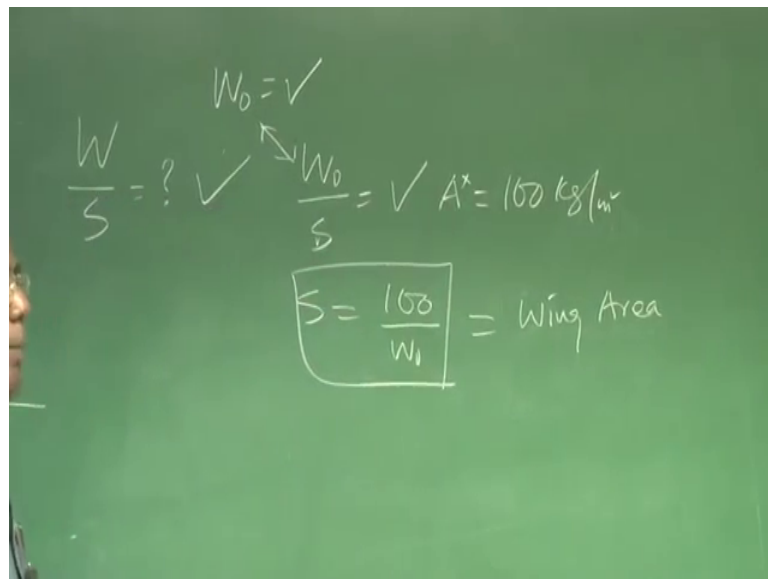 W₀ = ✓
W/S = ? ✓
W₀/S = ✓ A* = 100 kg/m²
S = 100/W₀ = Wing Area